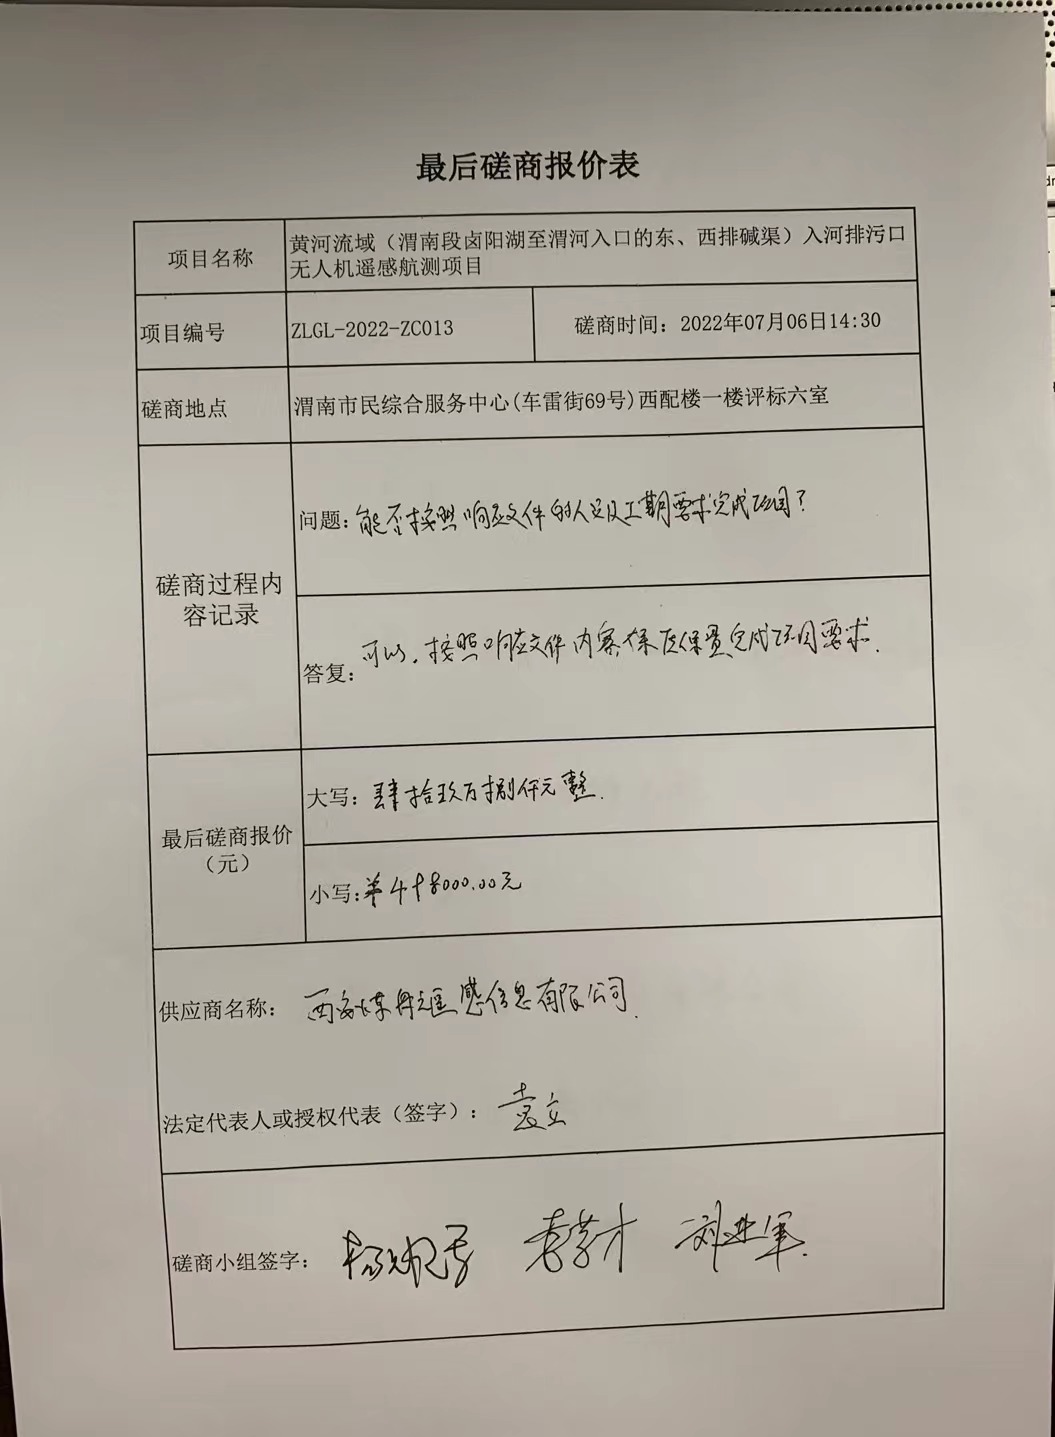 最后磋商报价表
项目名称
黄河流域（渭南段卤阳湖至渭河入口的东、西排碱渠）入河排污口
无人机遥感航测项目
项目编号
ZLGL-2022-ZC013
磋商时间：2022年07月06日14:30
磋商地点
渭南市民综合服务中心(车雷街69号)西配楼一楼评标六室
磋商过程内
容记录
问题：能否按照响应文件的人员及工期要求完成项目？
答复：可以，按照响应文件内容保质保量完成项目要求.
最后磋商报价
（元）
大写：肆拾玖万捌仟元整.
小写:￥498000.00元
供应商名称：西安煤舟遥感信息有限公司.
法定代表人或授权代表（签字）：袁立
磋商小组签字：